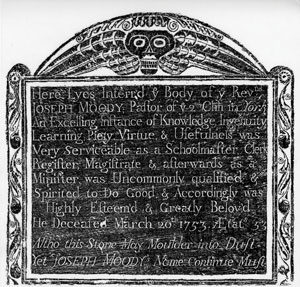 Here Lyes Interrd y Body of y Revd
JOSEPH MOODY, Pastor of y 2d Chh in York
An Excelling instance of Knowledge Ingenuity
Learning Piety Virtue & Usefulness was
Very Serviceable as a Schoolmaster Clerk
Register, Magistrate & afterwards as a
Minister was Uncommonly qualified &
Spirited to Do Good, & Accordingly was
Highly Esteem'd & Greatly Belov'd.
He Deceased March 20th 1753, Ætat 53
Altho this Stone May Moulder into Dust
Yet JOSEPH MOODY'S Name Continue Must